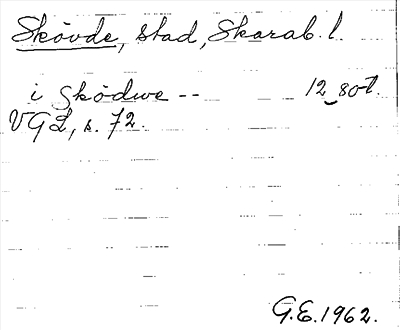 Skövde, stad, Skarab. l.
i sködwe -- 12 80-t.
VGL, s. 72.
G.E. 1962.